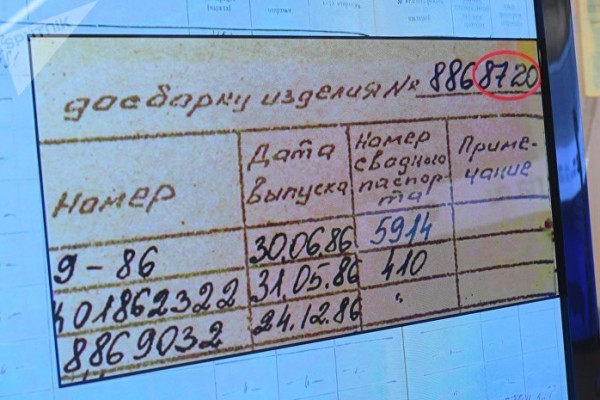 SPUTNIK
досборку изделия № 8868720
Номер
Дата выпуска
Номер сводного паспорта
Примечание
9-86 30.06.86 5914
401862322 31.05.86 410
8869032 24.12.86 "